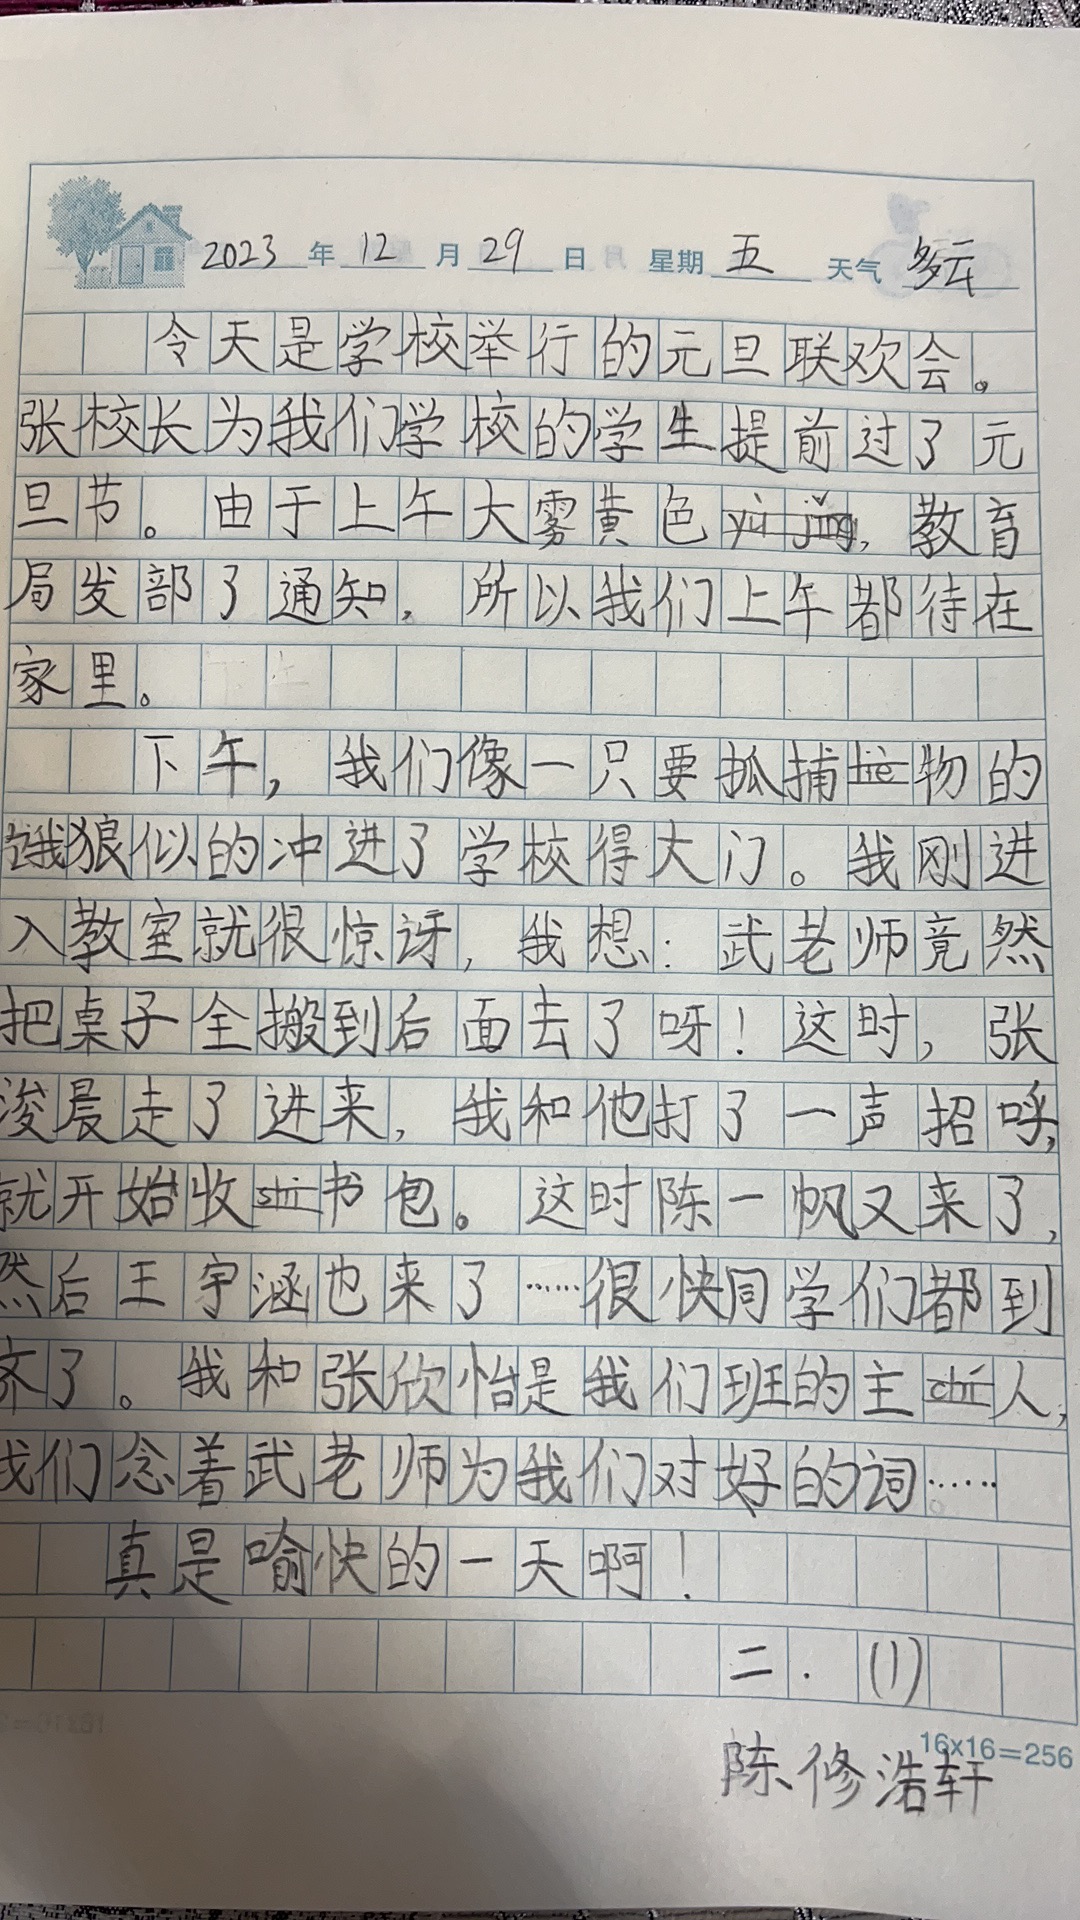 2023年12月29日 星期五 天气多云
今天是学校举行的元旦联欢会。
张校长为我们学校的学生提前过了元
旦节。由于上午大雾黄色yù jǐng,教育
局发部了通知,所以我们上午都待在
家里。
下午,我们像一只要抓捕liè物的
饿狼似的冲进了学校得大门。我刚进
入教室就很惊讶,我想:武老师竟然
把桌子全搬到后面去了呀!这时,张
浚晨走了进来,我和他打了一声招呼,
就开始收shí书包。这时陈一帆又来了,
然后王宇涵也来了……很快同学们都到
齐了。我和张欣怡是我们班的主chí人,
我们念着武老师为我们对好的词……
真是喻快的一天啊!
二.(1)
16×16=256
陈修浩轩